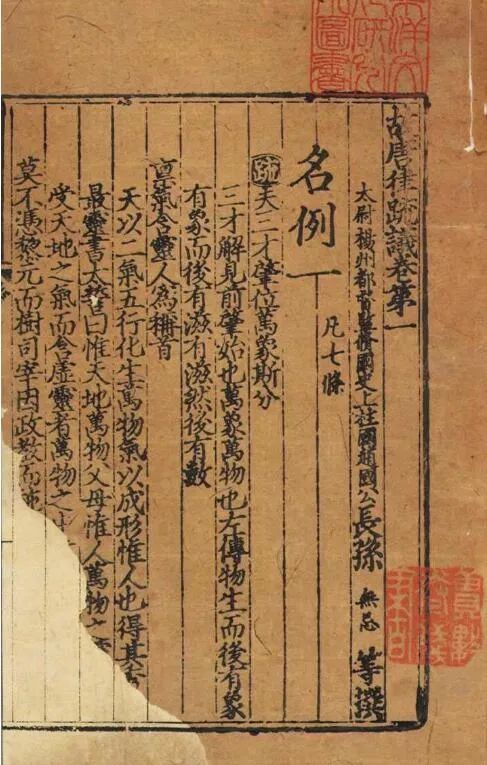 故唐律疏議卷第一
太尉揚州都督監脩國史上柱國趙國公長孫無忌等撰
名例一 凡七條
疏夫三才肇位萬象斯分
三才解見前肇始也萬象萬物也左傳物生而後有象
有象而後有滋有滋然後有數
禀氣含靈人為稱首
天以二氣五行化生萬物氣以成形惟人也得其
最靈書太誓曰惟天地萬物父母惟人萬物之
受天地之氣而含虛靈者萬物之
莫不憑黎元而樹司宰因政教而